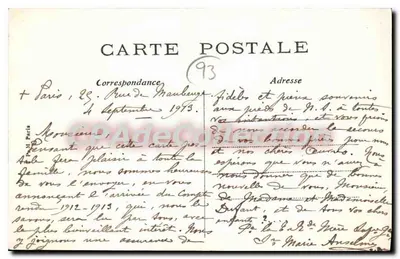 CARTE POSTALE
93
Correspondance
Adresse
+ Paris, 25, Rue de Maubeuge
4 Septembre 1913.
Monsieur
Pensant que cette carte pos-
tale fera plaisir à toute la
famille, nous sommes heureuses
de vous l'envoyer, en vous
annonçant l'arrivée du Compte
rendu 1912-1913, qui, nous le
savons, sera lu par tous, avec
le plus bienveillant intérêt. Nous
y joignons une assurance de
fidèles et pieux souvenirs
aux pieds de N. S. à toutes
vos intentions, et vous prions
de nous accorder le secours
de vos prières pour nous
nos chères Œuvres. Nous
espérons que vous n'avez
que de bonnes
nouvelles de vous, Monsieur
de Madame et Mademoiselle
et de tous vos chers
enfants ?
Pr la T. R. Mère
Sr Marie Anselme
Paris